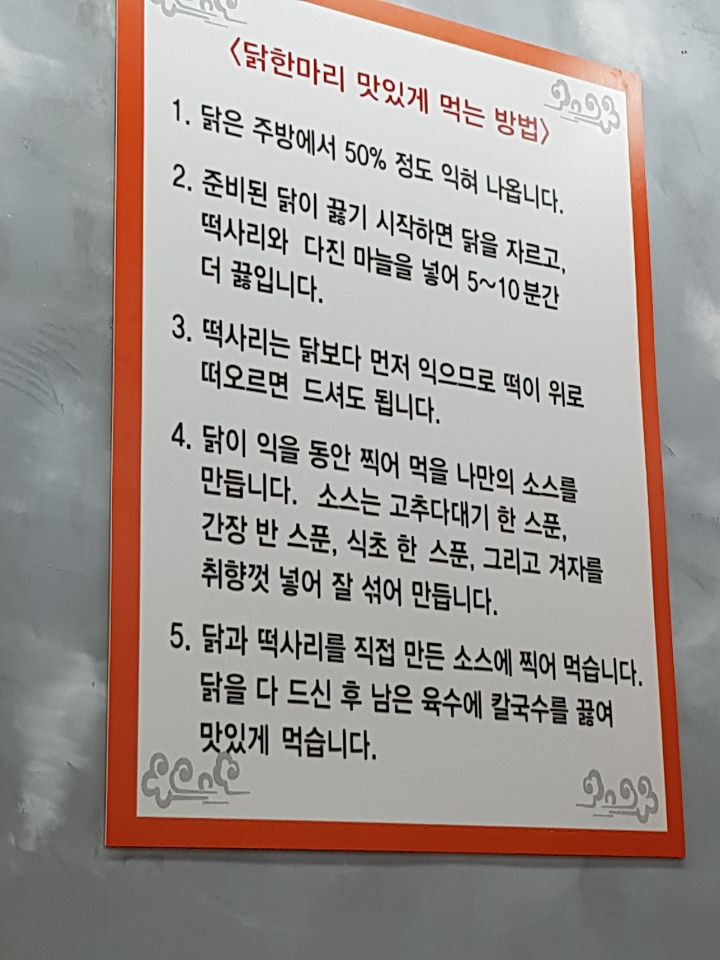 <닭한마리 맛있게 먹는 방법>
1. 닭은 주방에서 50% 정도 익혀 나옵니다.
2. 준비된 닭이 끓기 시작하면 닭을 자르고,
떡사리와 다진 마늘을 넣어 5~10분간
더 끓입니다.
3. 떡사리는 닭보다 먼저 익으므로 떡이 위로
떠오르면 드셔도 됩니다.
4. 닭이 익을 동안 찍어 먹을 나만의 소스를
만듭니다. 소스는 고추다대기 한 스푼,
간장 반 스푼, 식초 한 스푼, 그리고 겨자를
취향껏 넣어 잘 섞어 만듭니다.
5. 닭과 떡사리를 직접 만든 소스에 찍어 먹습니다.
닭을 다 드신 후 남은 육수에 칼국수를 끓여
맛있게 먹습니다.